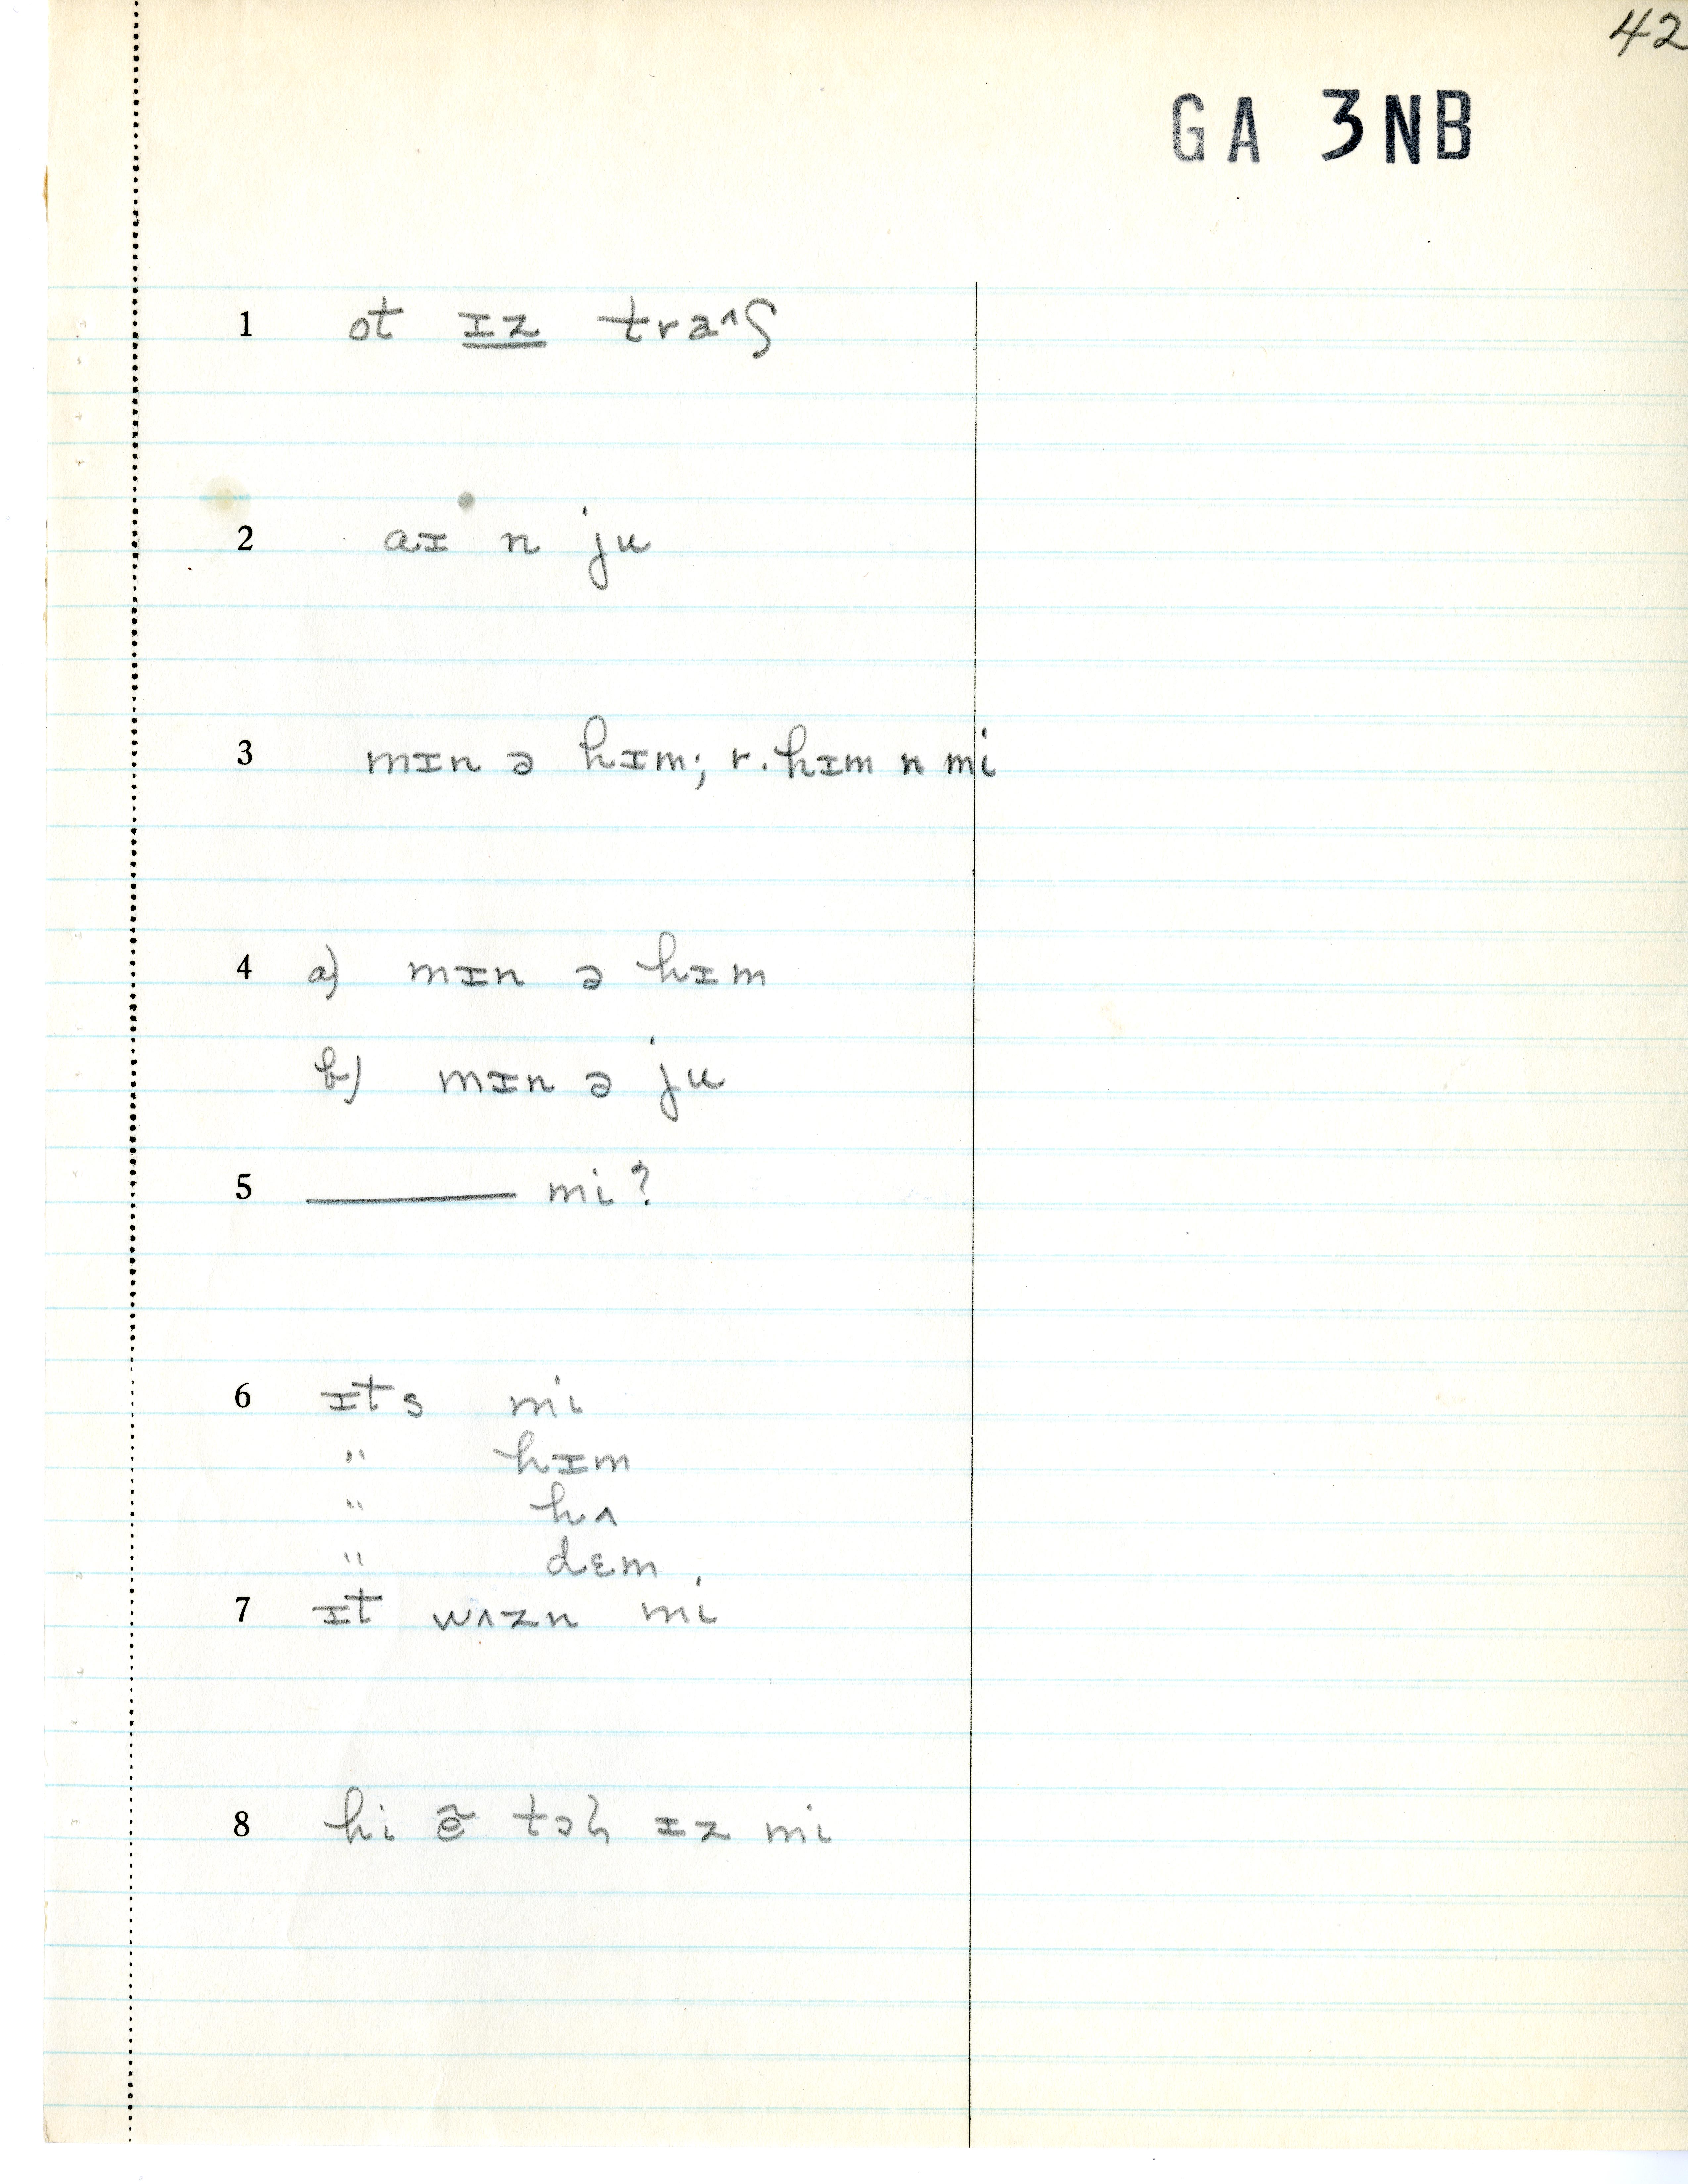 42
GA 3NB
1 ot ɪz tra^ʃ
2 aɪ n ju
3 mɪn ə hɪm; r. hɪm n mi
4 a) mɪn ə hɪm
b) mɪn ə ju
5 ______ mi?
6 ɪts mi
" hɪm
" hʌ
" dɛm
7 ɪt wʌzn mi
8 hi ẽ tɔɫ ɪz mi